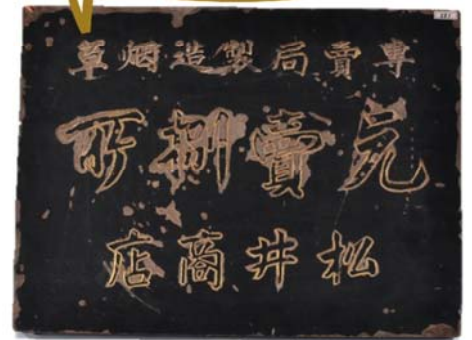 專賣局製造烟草
元賣捌所
松井商店